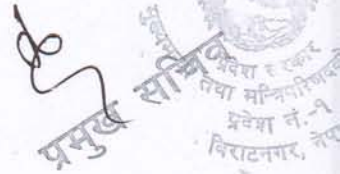 प्रमुख सचिव
प्रदेश सरकार
तथा मन्त्रिपरिषद्को
प्रदेश नं.-१
विराटनगर, नेपाल